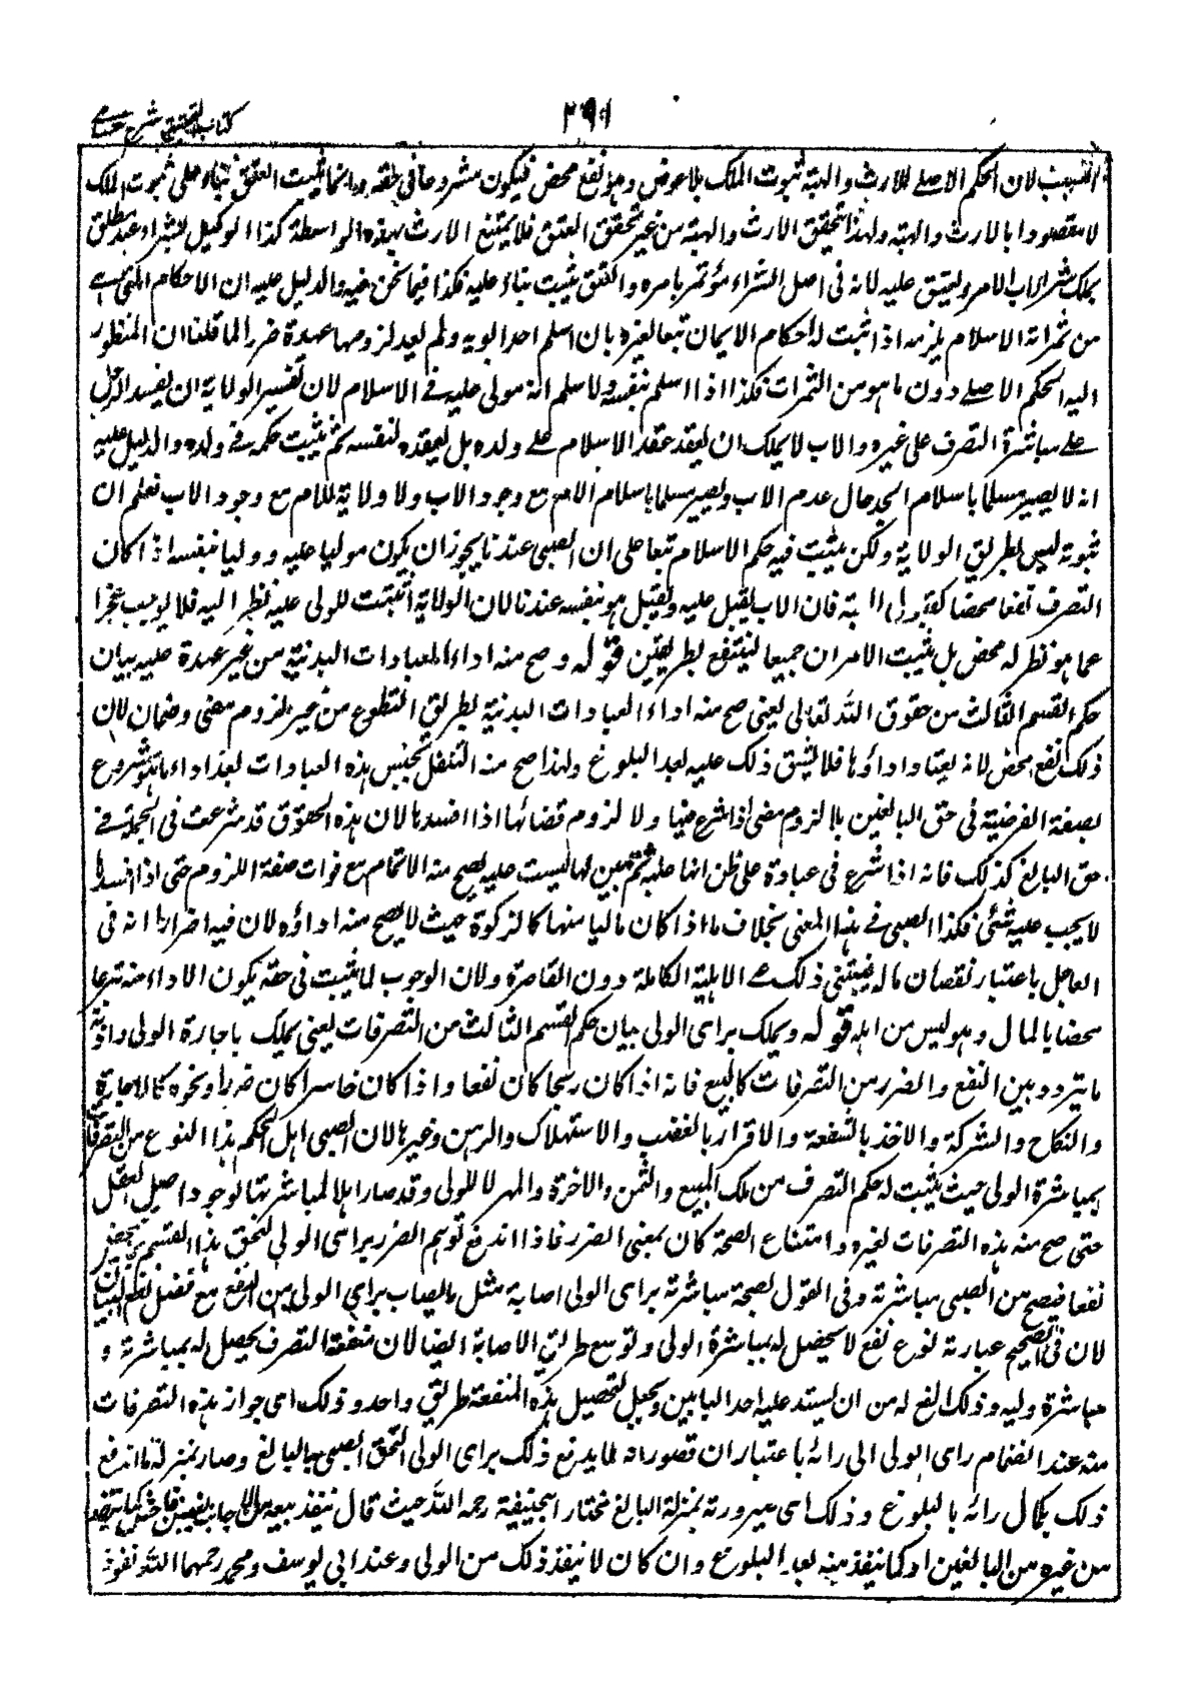 كتاب التحقيق شرح حسامى
٢٩١
لان الحكم الاصلى للارث والهبة ثبوت الملك بلا عوض وهو نفع محض فيكون مشروعا فى حقه وانما يثبت العتق بناء على ثبوت الملك
لا مقصودا بالارث والهبة ولهذا تحقق الارث والهبة من غير تحقق العتق فلا يمتنع الارث بهذه الواسطة كذا الوكيل بشراء عبد مطلق
يملك شراء اب الامر ويعتق عليه لانه فى اصل الشراء مؤتمر بامره والعتق يثبت بناء عليه فكذا فيما نحن فيه والدليل عليه ان الاحكام التى هى
من ثمراته الاسلام يلزمه اذا ثبت له احكام الايمان تبعا لغيره بان اسلم احد ابويه ولم يعد لزومها عهدة ضرر لما قلنا ان المنظور
اليه الحكم الاصلى دون ما هو من الثمرات فكذا اذا اسلم بنفسه ولا سلم انه مولى عليه فى الاسلام لان تفسير الولاية ان يفسد الرجل
على مباشرة التصرف على غيره والاب لا يملك ان يعقد عقد الاسلام على ولده بل يعقده لنفسه ثم يثبت حكمه فى ولده والدليل عليه
انه لا يصير مسلما باسلام الجد حال عدم الاب ويصير مسلما باسلام الام مع وجود الاب ولا ولاية للام مع وجود الاب فعلم ان
ثبوته ليس بطريق الولاية ولكن يثبت فيه حكم الاسلام تبعا على ان الصبى عندنا يجوز ان يكون موليا عليه ووليا بنفسه اذا كان
التصرف نفعا محضا كقبول الهبة فان الاب يقبل عليه ويقبل هو بنفسه عندنا لان الولاية اثبتت للولى عليه نظرا اليه فلا يوجب حجرا
عما هو نظر له محض بل يثبت الامران جميعا لينتفع بطريقين قوله وصح منه اداء العبادات البدنية من غير عهدة عليه بيان
حكم القسم الثالث من حقوق الله تعالى يعنى صح منه اداء العبادات البدنية بطريق التطوع من غير لزوم مضى وضمان لان
ذلك نفع محض لانه يعتاد اداؤها فلا يشق ذلك عليه بعد البلوغ ولهذا صح منه التنفل بجنس هذه العبادات بعد اداء ما هو مشروع
بصفة الفرضية فى حق البالغين بلا لزوم مضى اذا شرع فيها ولا لزوم قضائها اذا افسدها لان هذه الحقوق قد شرعت فى الجملة فى
حق البالغ كذلك فانه اذا شرع فى عبادة على ظن انها عليه ثم تبين انها ليست عليه يصح منه الاتمام مع فوات صفة اللزوم حتى اذا افسدها
لا يجب عليه شئ فكذا الصبى فى هذا المعنى بخلاف ما اذا كان ماليا منها كالزكوة حيث لا يصح منه اداؤه لان فيه اضرارا به فى
العاجل باعتبار نقصان ماله فيبتنى ذلك على الاهلية الكاملة دون القاصرة ولان الوجوب لما يثبت فى حقه يكون الاداء منه تبرعا
محضا بالمال وهو ليس من اهله قوله ويملك براى الولى بيان حكم القسم الثالث من التصرفات يعنى يملك باجازة الولى واذنه
ما يتردد بين النفع والضرر من التصرفات كالبيع فانه اذا كان ربحا كان نفعا واذا كان خاسرا كان ضررا ونحوه كالاجارة
والنكاح والشركة والاخذ بالشفعة والاقرار بالغصب والاستهلاك والرهن وغيرها لان الصبى اهل لحكم هذا النوع من التصرفات
بمباشرة الولى حيث يثبت له حكم التصرف من ملك المبيع والثمن والاجرة والمهر للولى وقد صار اهلا لمباشرتها لوجود اصل العقل
حتى صح منه هذه التصرفات لغيره وامتناع الصحة كان بمعنى الضرر فاذا اندفع توهم الضرر براى الولى التحق هذا القسم بما تمحض
نفعا فيصح من الصبى مباشرته وفى القول بصحة مباشرته براى الولى اصابة مثل ما يصاب براى الولى من النفع مع فضل نفع البيان
لان فى تصحيح عبارته نوع نفع لا يحصل له بمباشرة الولى وتوسع طريق الاصابة ايضا لان منفعة التصرف يحصل له بمباشرته و
مباشرة وليه وذلك انفع له من ان يستد عليه احد البابين ويجعل لتحصيل هذه المنفعة طريق واحد وذلك اى جواز هذه التصرفات
منه عند انضمام راى الولى الى رائه باعتبار ان قصور رائه لما يدفع ذلك براى الولى التحق الصبى بالبالغ وصار بمنزلة ما اندفع
ذلك بكمال رائه بالبلوغ وذلك اى صيرورته بمنزلة البالغ مختار ابى حنيفة رحمه الله حيث قال ينفذ بيعه من الاجانب بغبن فاحش كما ينفذ
من غيره من البالغين او كما ينفذ منه بعد البلوغ وان كان لا ينفذ ذلك من الولى وعند ابى يوسف ومحمد رحمهما الله نفوذ